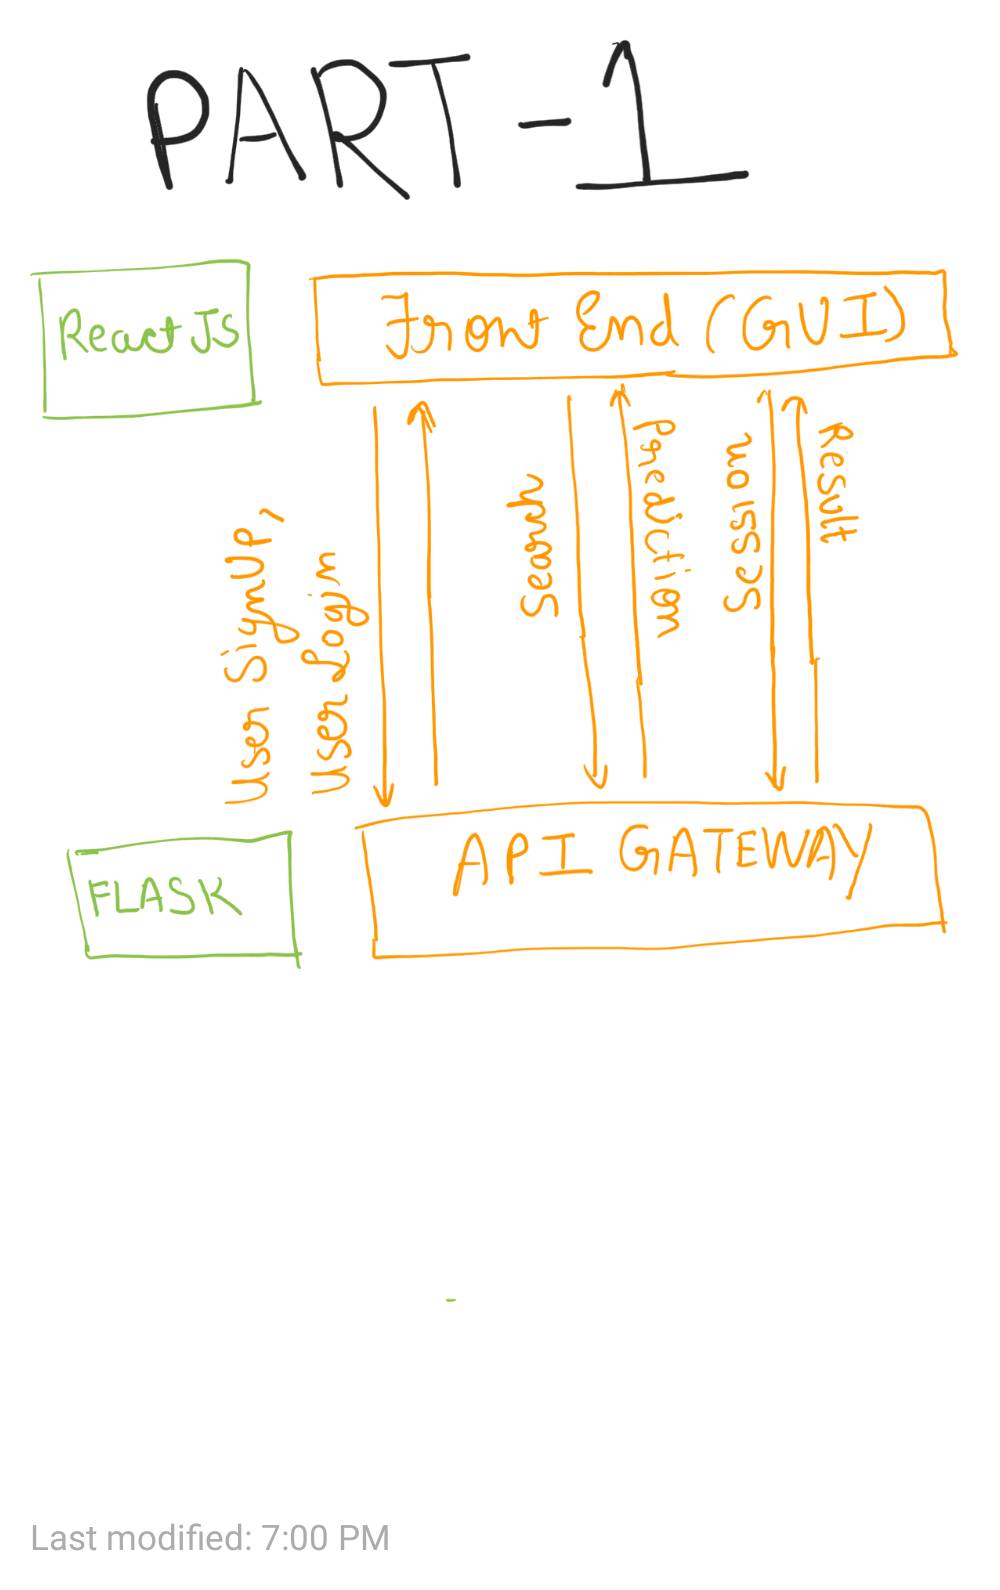 PART-1
React JS
Front End (GUI)
User SignUP,
User Login
Search
Prediction
Session
Result
FLASK
API GATEWAY
Last modified: 7:00 PM